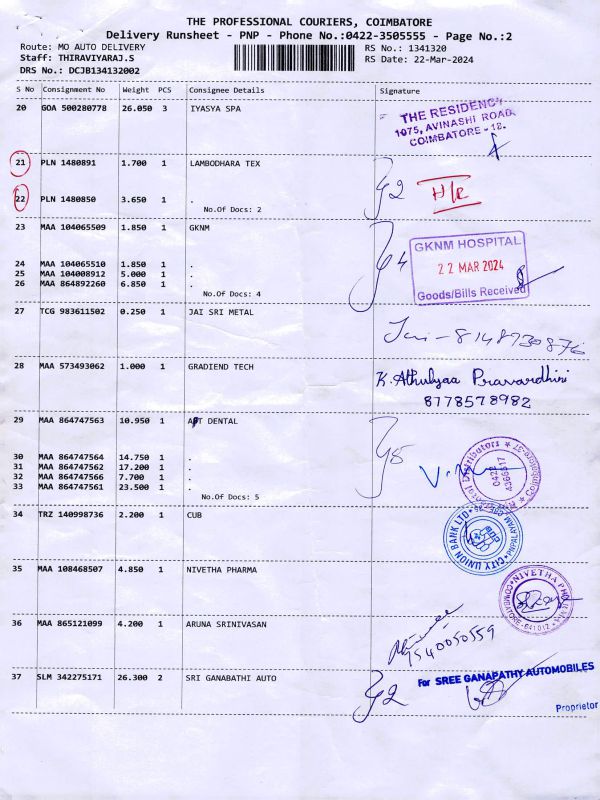 THE PROFESSIONAL COURIERS, COIMBATORE
Delivery Runsheet - PNP - Phone No.:0422-3505555 - Page No.:2
Route: MO AUTO DELIVERY RS No.: 1341320
Staff: THIRAVIYARAJ.S RS Date: 22-Mar-2024
DRS No.: DCJB134132002
S No Consignment No Weight PCS Consignee Details Signature
20 GOA 500280778 26.050 3 IYASYA SPA
THE RESIDENCY
1075, AVINASHI ROAD,
COIMBATORE - 18.
21 PLN 1480891 1.700 1 LAMBODHARA TEX
22 PLN 1480850 3.650 1 .
No.Of Docs: 2
23 MAA 104065509 1.850 1 GKNM
24 MAA 104065510 1.850 1 .
25 MAA 104008912 5.000 1 .
26 MAA 864892260 6.850 1 .
No.Of Docs: 4
GKNM HOSPITAL
22 MAR 2024
Goods/Bills Received
27 TCG 983611502 0.250 1 JAI SRI METAL
28 MAA 573493062 1.000 1 GRADIEND TECH
K. Athulyaa Pravardhini
8778578982
29 MAA 864747563 10.950 1 APT DENTAL
30 MAA 864747564 14.750 1 .
31 MAA 864747562 17.200 1 .
32 MAA 864747566 7.700 1 .
33 MAA 864747561 23.500 1 .
No.Of Docs: 5
34 TRZ 140998736 2.200 1 CUB
CITY UNION BANK LTD
35 MAA 108468507 4.850 1 NIVETHA PHARMA
NIVETHA PHARMA
COIMBATORE - 641012
36 MAA 865121099 4.200 1 ARUNA SRINIVASAN
9540050559
37 SLM 342275171 26.300 2 SRI GANABATHI AUTO
For SREE GANAPATHY AUTOMOBILES
Proprietor